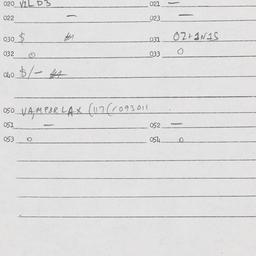 020 VILD3 021 —
022 — 023 —
030 $ 031 OZ+1N1S
032 0 033 0
040 $/—
050 VAMPERLAX (117(1093011
051 — 052 —
053 0 054 0